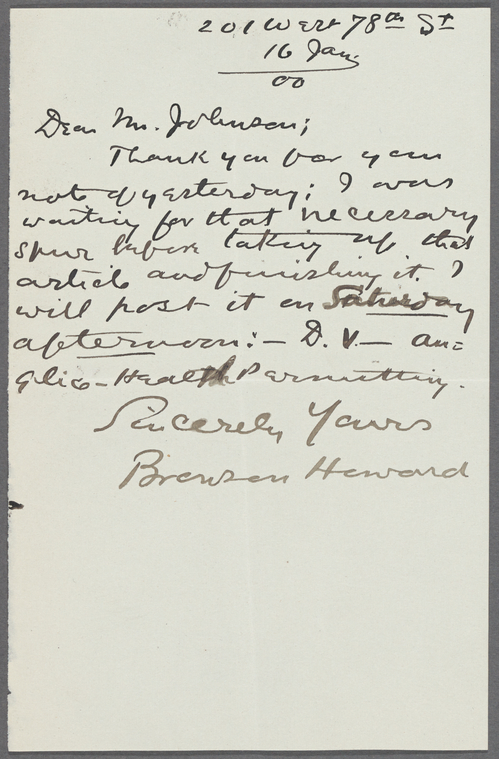 201 West 78th St
16 Jan.
00
Dear Mr. Johnson;
Thank you for your
note of yesterday; I was
waiting for that necessary
spur before taking up that
article and finishing it. I
will post it on Saturday
afternoon:— D. V.— an=
glice—Health Permitting.
Sincerely Yours
Bronson Howard